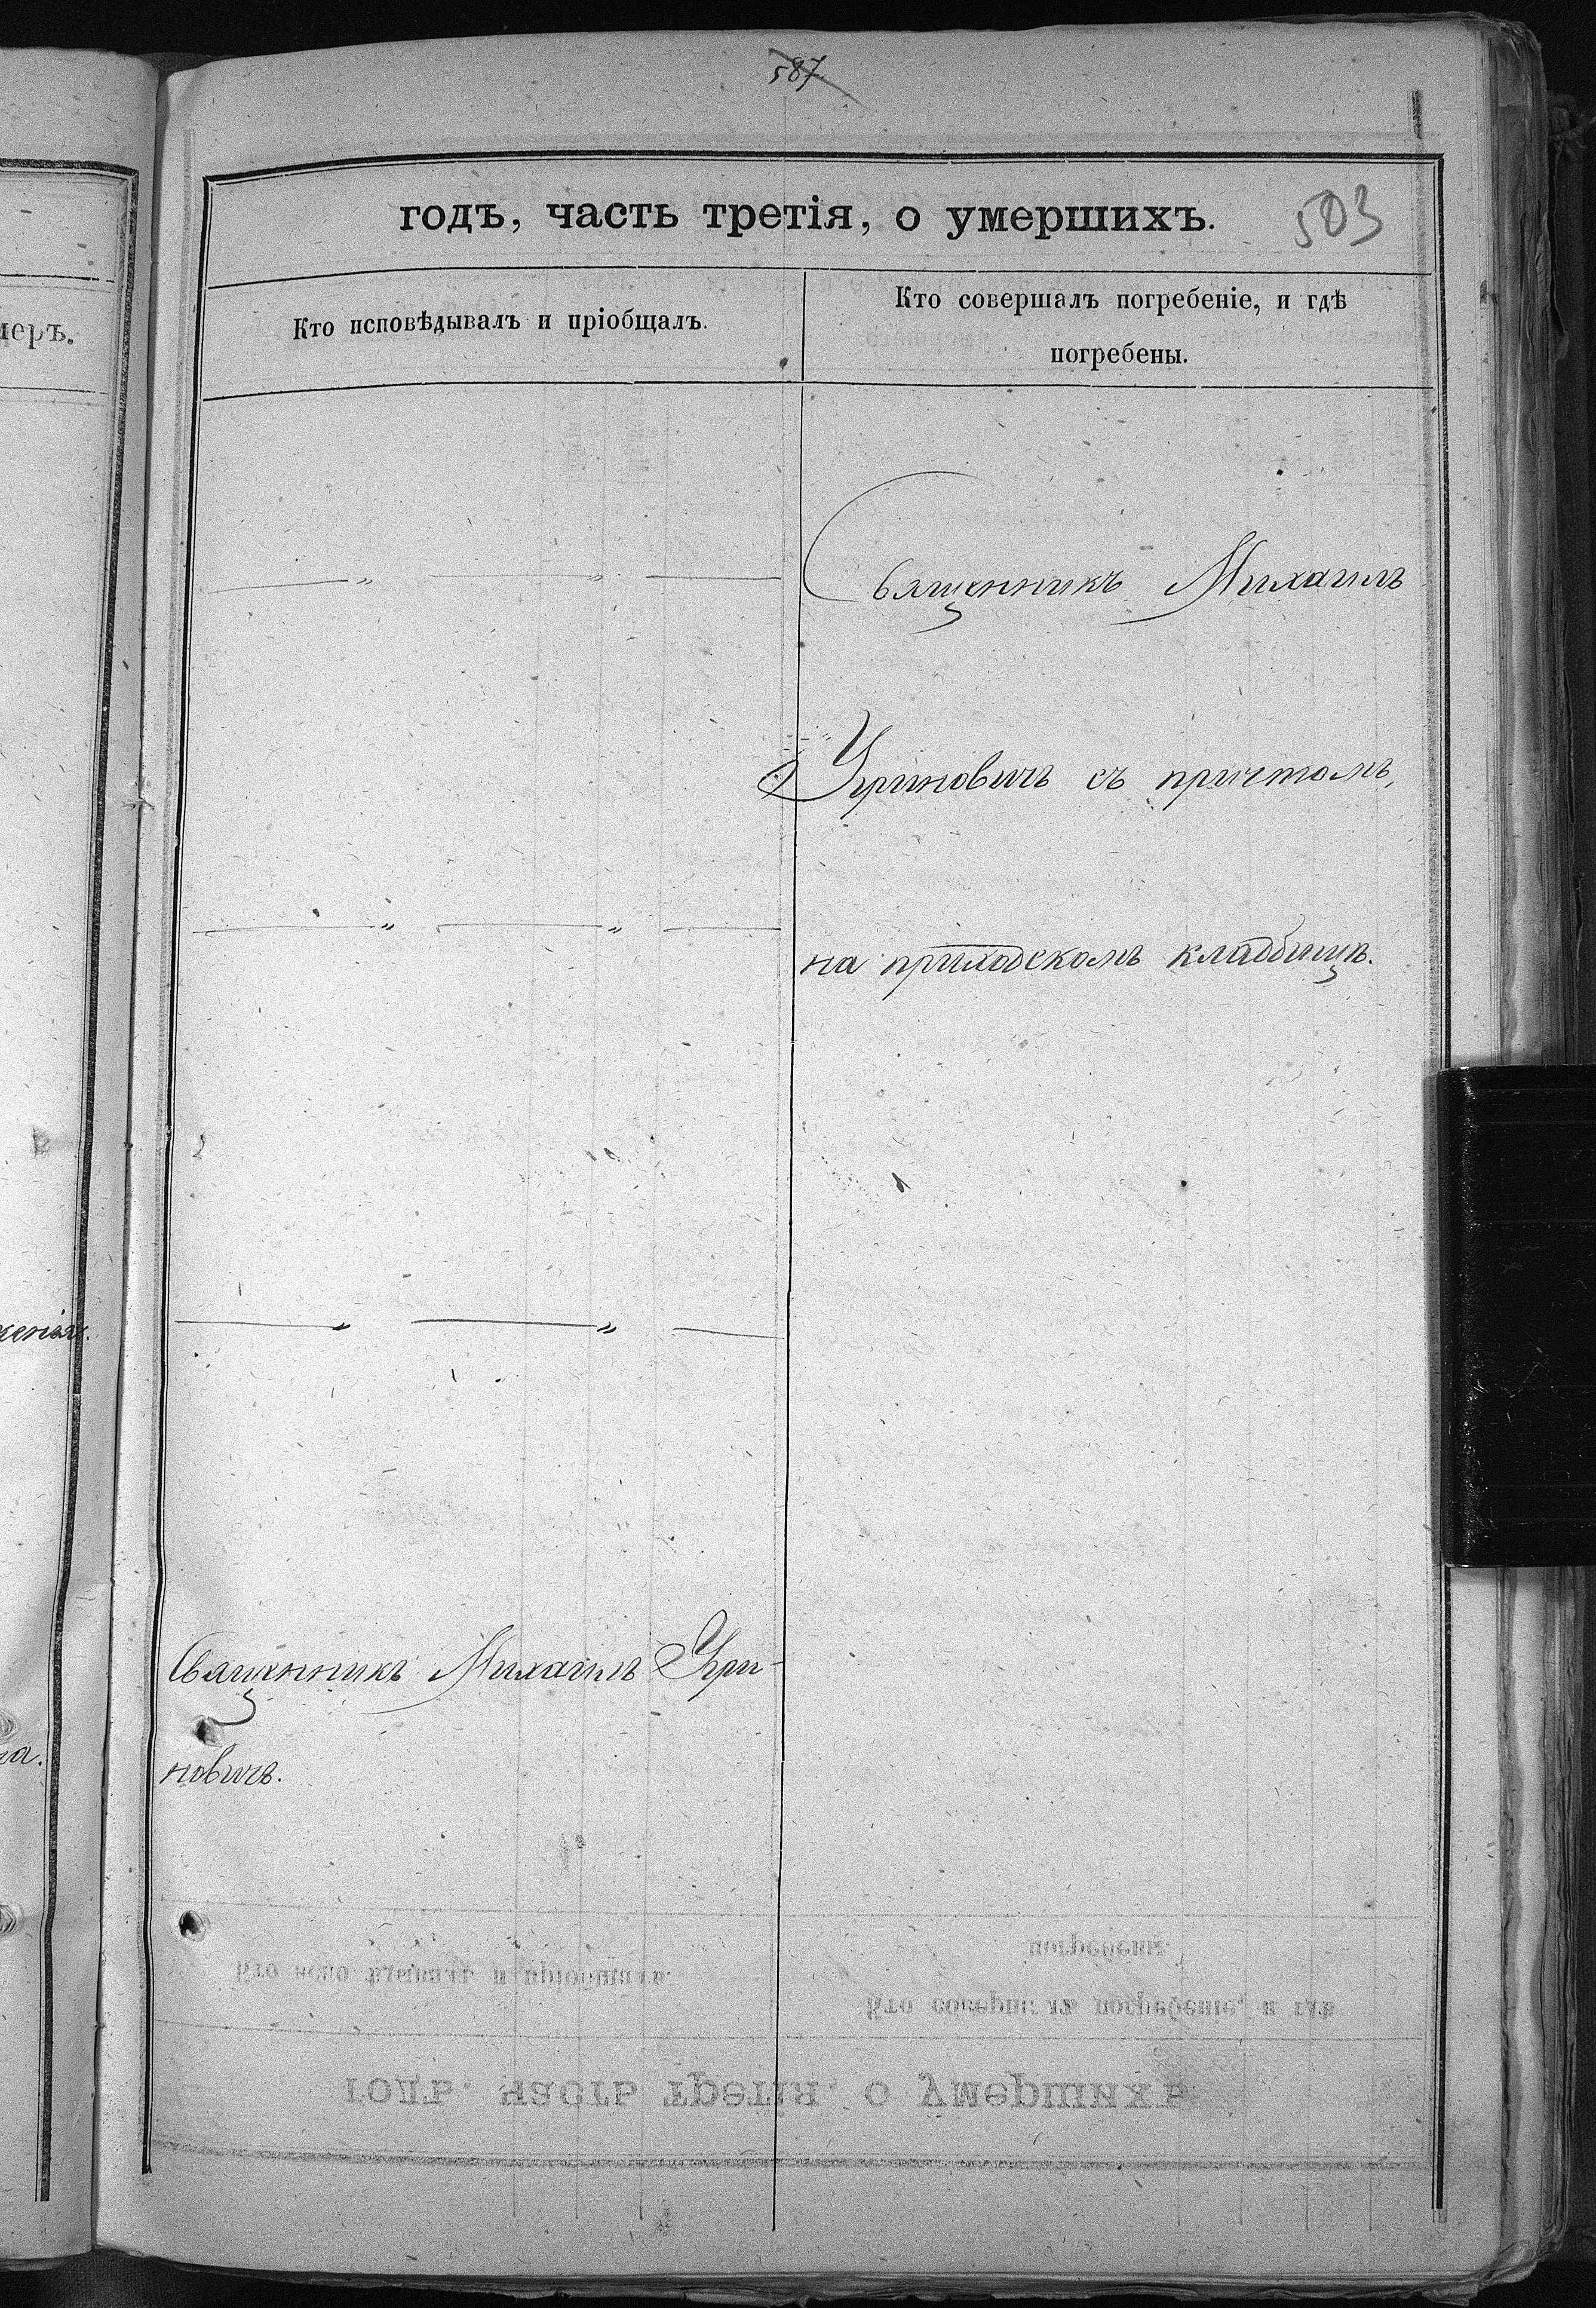 587
годъ, часть третія, о умершихъ. 503
меръ.
Кто исповѣдывалъ и пріобщалъ.
Кто совершалъ погребеніе, и гдѣ
погребены.
— „ — „ —
Священникъ Михаилъ
Угриновичъ съ причтомъ,
— „ — „ —
на приходскомъ кладбищѣ.
— „ — „ —
женія.
Священникъ Михаилъ Угри-
новичъ.